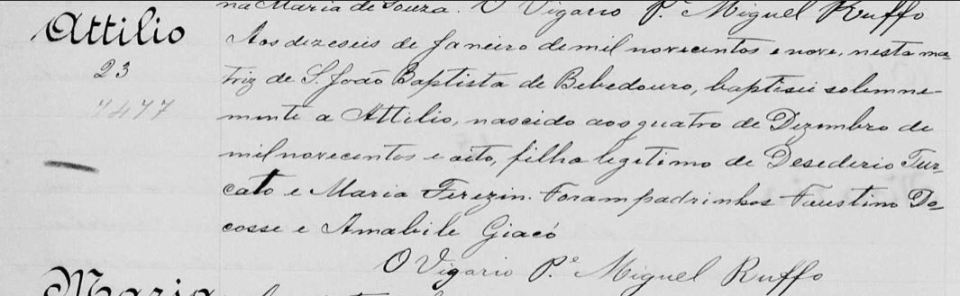 na Maria de Souza. O Vigario P.e Miguel Ruffo
Attilio
23
7477
Aos dezeseis de Janeiro de mil novecentos e nove, nesta ma-
triz de S. João Baptista de Bebedouro, baptisei solemne-
mente a Attilio, nascido aos quatro de Dezembro de
mil novecentos e oito, filho legitimo de Desederio Tur-
cato e Maria Ferezin. Foram padrinhos Faustino Do-
cosse e Amabile Giacó
O Vigario P.e Miguel Ruffo
Maria